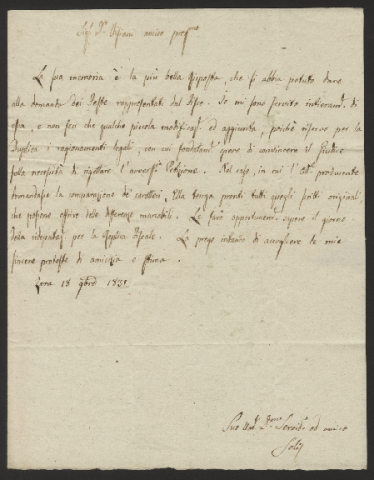 Sig.r D.r Viviani amico preg.mo
La sua memoria è la più bella risposta, che si abbia potuto dare
alla domanda dei Teste rappresentati dal Sig.r. Io mi sono servito intieram.e di
essa, e non feci che qualche piccola modificaz.e ed aggiunta, poichè riservo per la
Duplica i ragionamenti legali, con cui fondatam.e spero di convincere il Giudice
sulla necessità di rigettare l'avversa Petizione. Nel caso, in cui l'att.e producente
domandasse la comparazione dei caratteri, Ella tenga pronti tutti quegli scritti originali
che possono offrire delle differenze marcabili. Le farò appositamen.e sapere il giorno
della redestinaz.e per la Replica Fiscale. La prego intanto di accogliere le mie
sincere proteste di amicizia e stima.
18 9bre 1831
Suo Servit.e ed amico